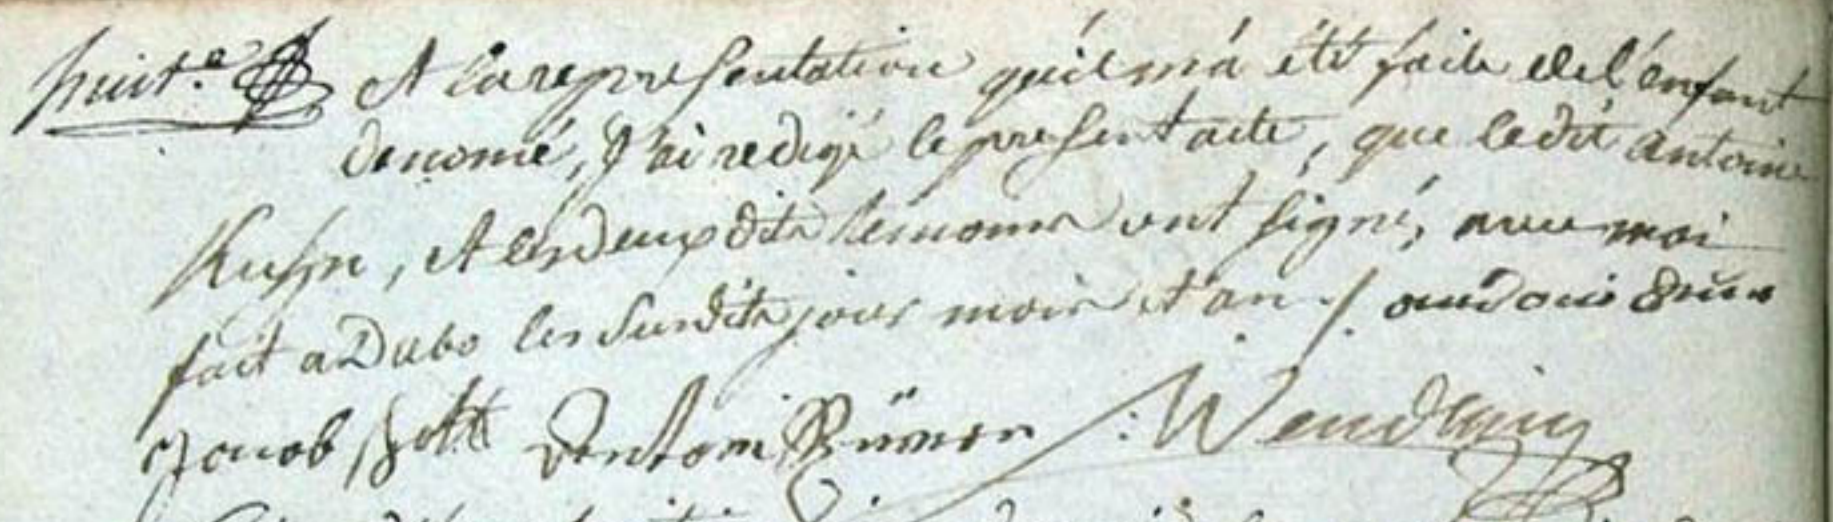 huit.e Et la representation qu'il m'a été faite de l'enfant
denomé, J'ai redigé le present acte, que ledit antoine
Kuhn, et les deux dits temoins ont signé, avec moi
fait a Dabo les susdits jour mois et an ./.
Jacob Wendling